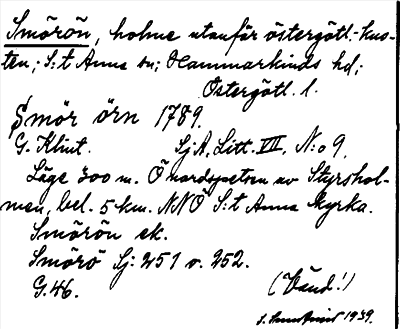 Smörön, holme utanför östergötl.-kus-
ten; S:t Anna sn; Hammarkinds hd;
Östergötl. l.
Smör örn 1789.
G. Klint. SjA, Litt. VII, N:o 9,
Läge 300 m. Ö nordspetsen av Styrshol-
men, bel. 5 km. NNÖ S:t Anna kyrka.
Smörön ek.
Smörö Sj: 251 o. 252.
G.46.
(Vänd!)
1939.